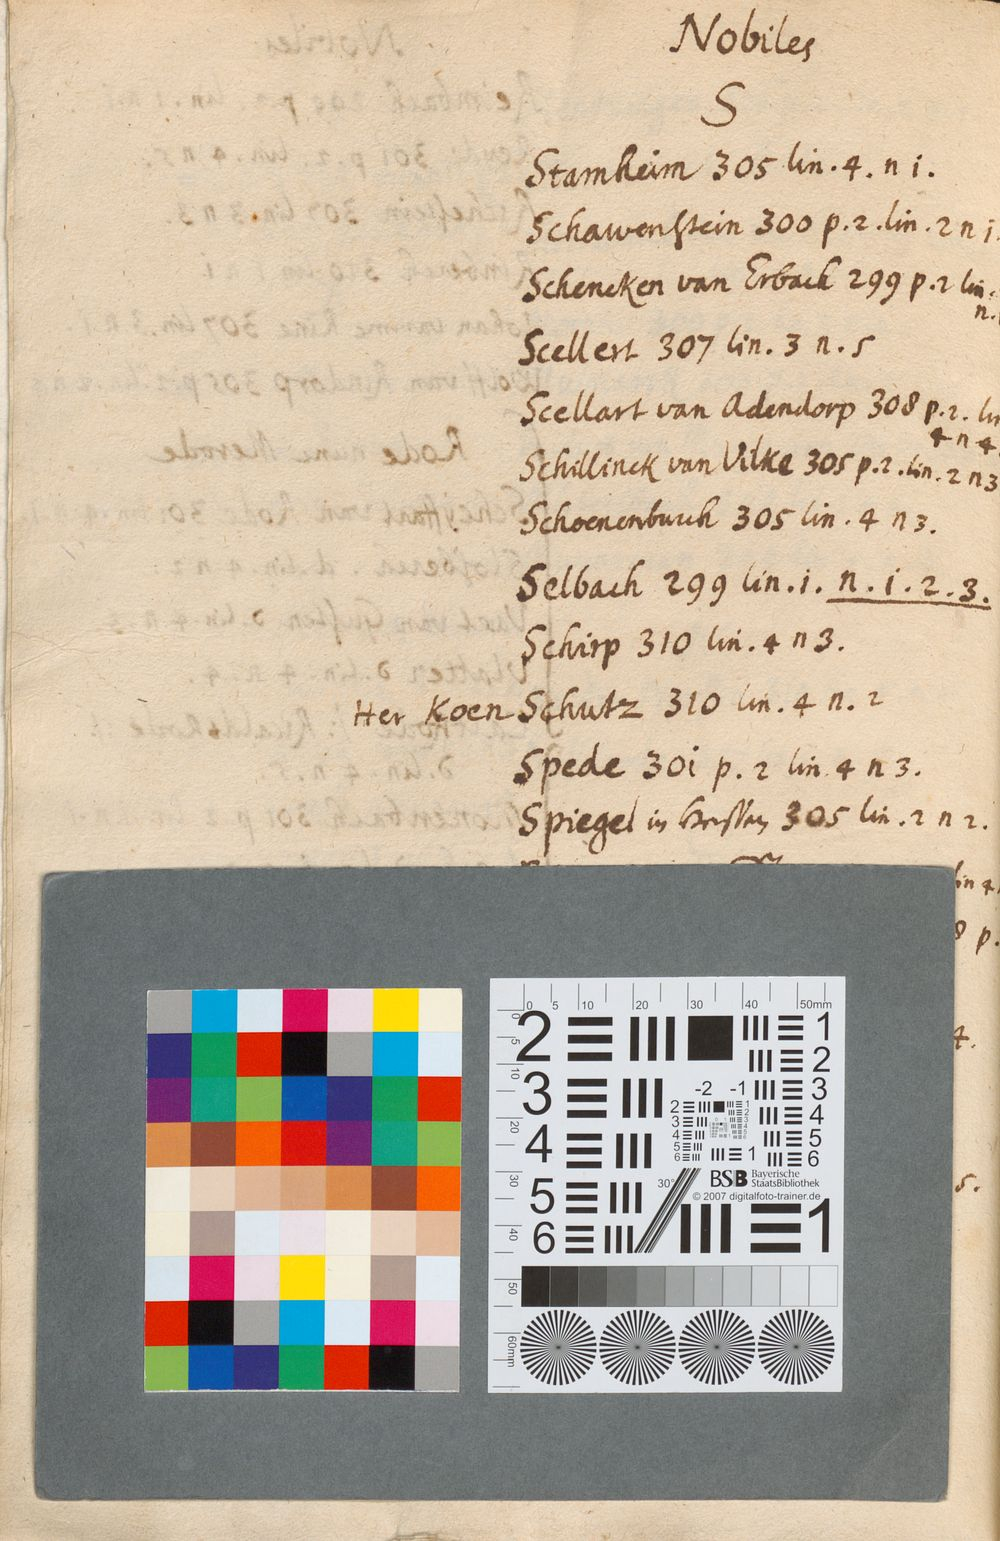 Nobiles
S
Stamheim 305 lin. 4. n i.
Schawenstein 300 p. 2. lin. 2 n i
Schencken van Erbach 299 p. 2 lin.
n.
Scellert 307 lin. 3 n. 5
Scellart van Adendorp 308 p. 2. lin
4 n 4
Schillinck van Vilke 305 p. 2. lin. 2 n 3
Schoenenburch 305 lin. 4 n 3.
Selbach 299 lin. i. n. i. 2. 3.
Schirp 310 lin. 4 n 3.
Her Koen Schutz 310 lin. 4 n. 2
Spede 30i p. 2 lin. 4 n 3.
Spiegel in 305 lin. 2 n 2.
lin 4
8 p.
4.
5.
0 5 10 20 30 40 50mm
0 5 10 20 30 40 50 60mm
2 1
2
3 -2 -1 3
4 4
5
6
5 30°
BSB Bayerische
StaatsBibliothek
© 2007 digitalfoto-trainer.de
6 1